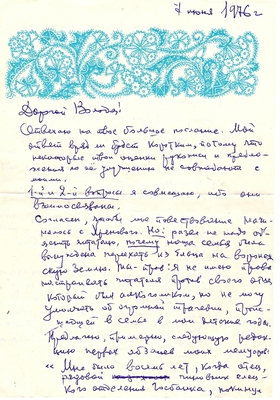 7 июня 1976 г
Дорогой Володя!
Отвечаю на твое большое послание. Мой
ответ вряд ли будет коротким, потому что
некоторые твои оценки рукописи и предло-
жения по её улучшению не совпадают с
моими.
1-й и 2-й вопросы я совмещаю, ибо они
взаимосвязаны.
Согласен, чтобы мое повествование
с Но: разве не надо объ-
яснить читателю, почему наша семья была
вынуждена переехать из Ельца на воронеж-
скую землю. Я не имею права
настраивать читателя против своего отца,
который был алкоголиком, но не могу
умолчать об огромной трагедии, проис-
шедшей в семье в мои детские годы.
Предлагаю, примерно, следующую редак-
цию первых абзацев моих мемуаров:
"Мне было восемь лет, когда отец,
рядовой елец-
кого отделения Госбанка, покинул